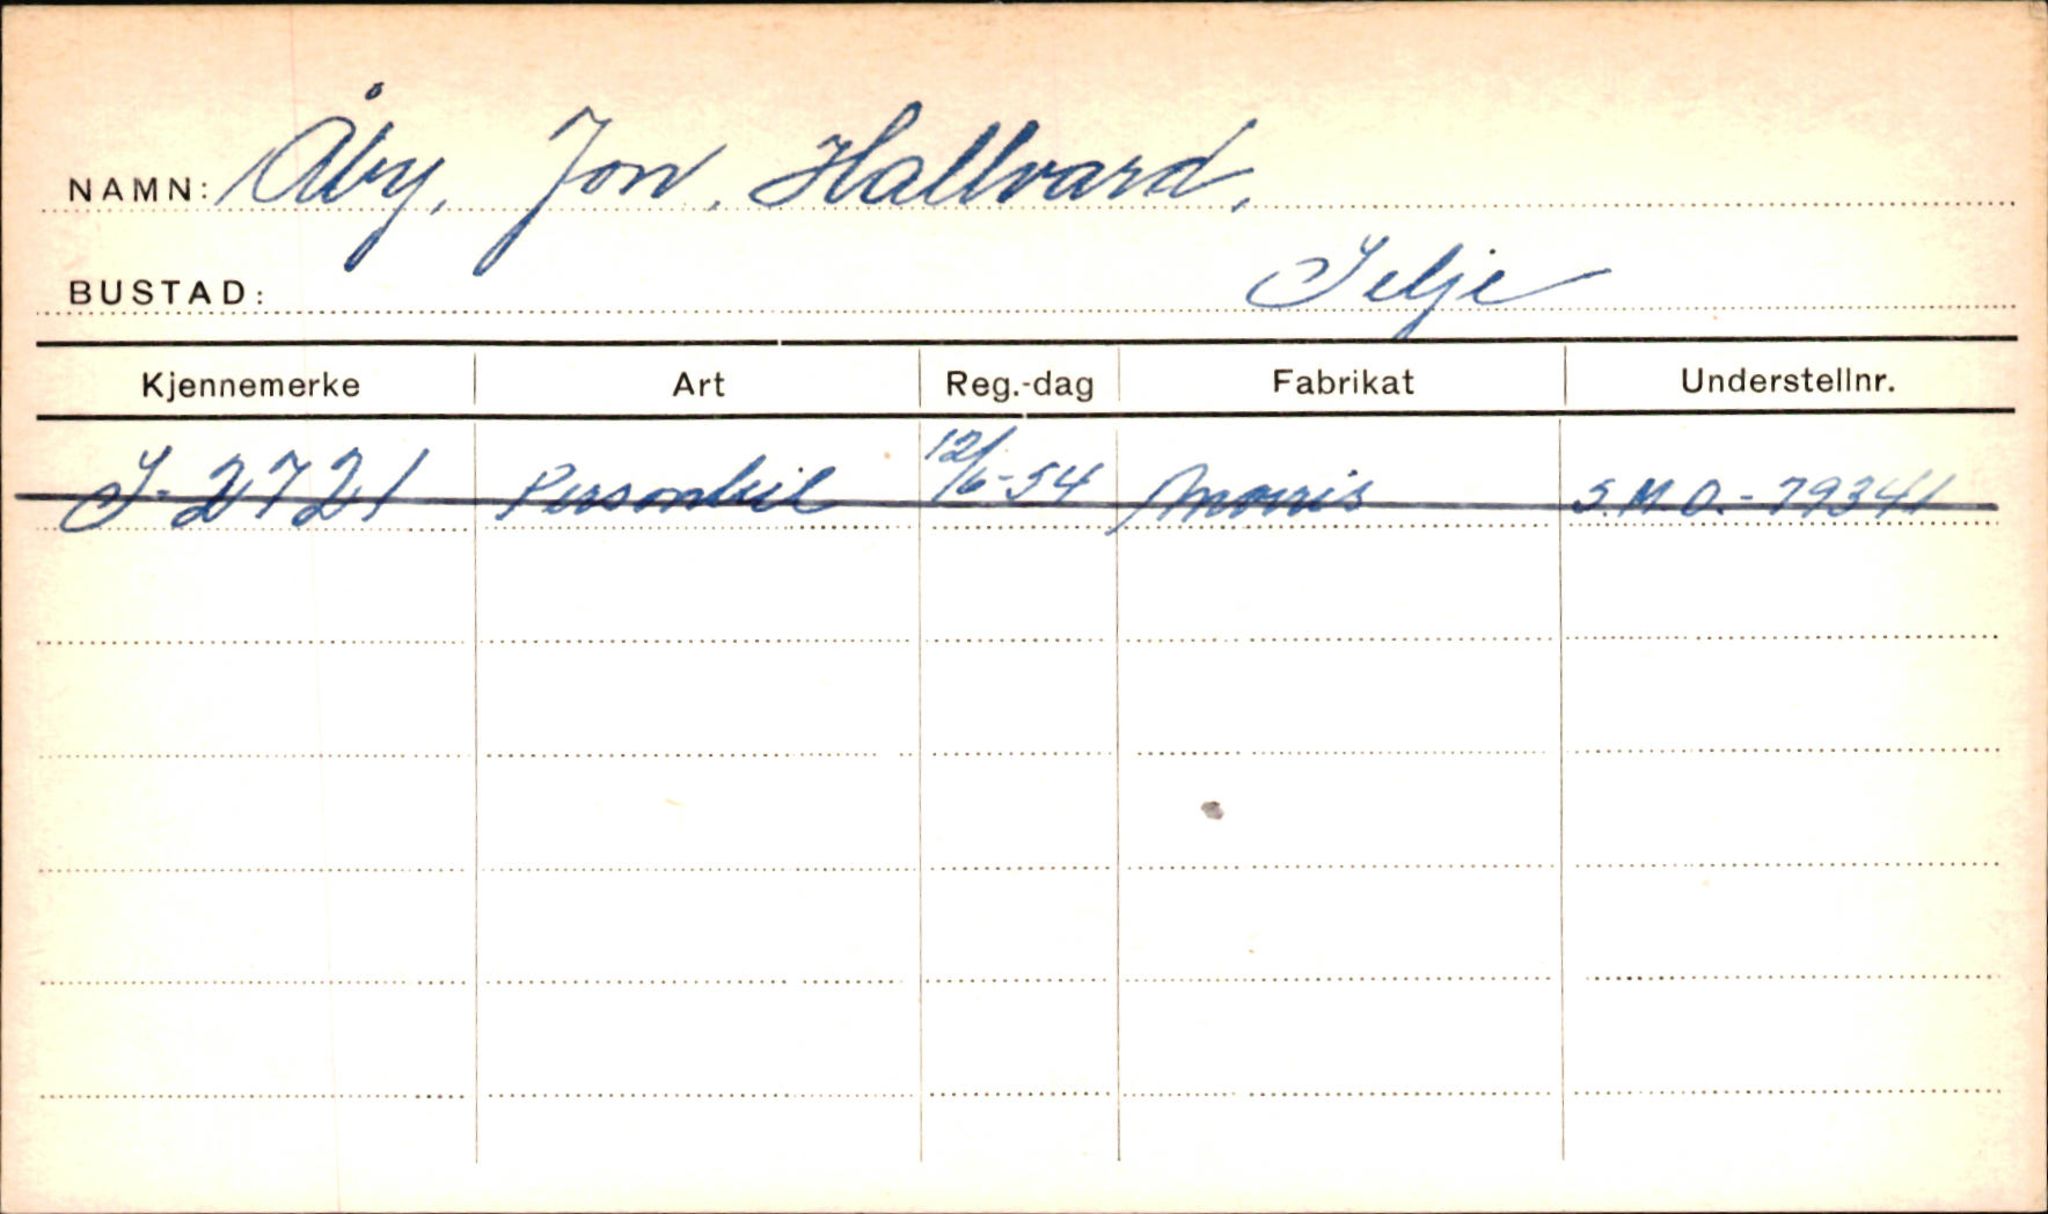 NAMN: Åby, Jon, Hallvard,
BUSTAD: Selje
Kjennemerke Art Reg.-dag Fabrikat Understellnr.
S-2721 Personbil 12/6-54 Morris S.M.O.-79341